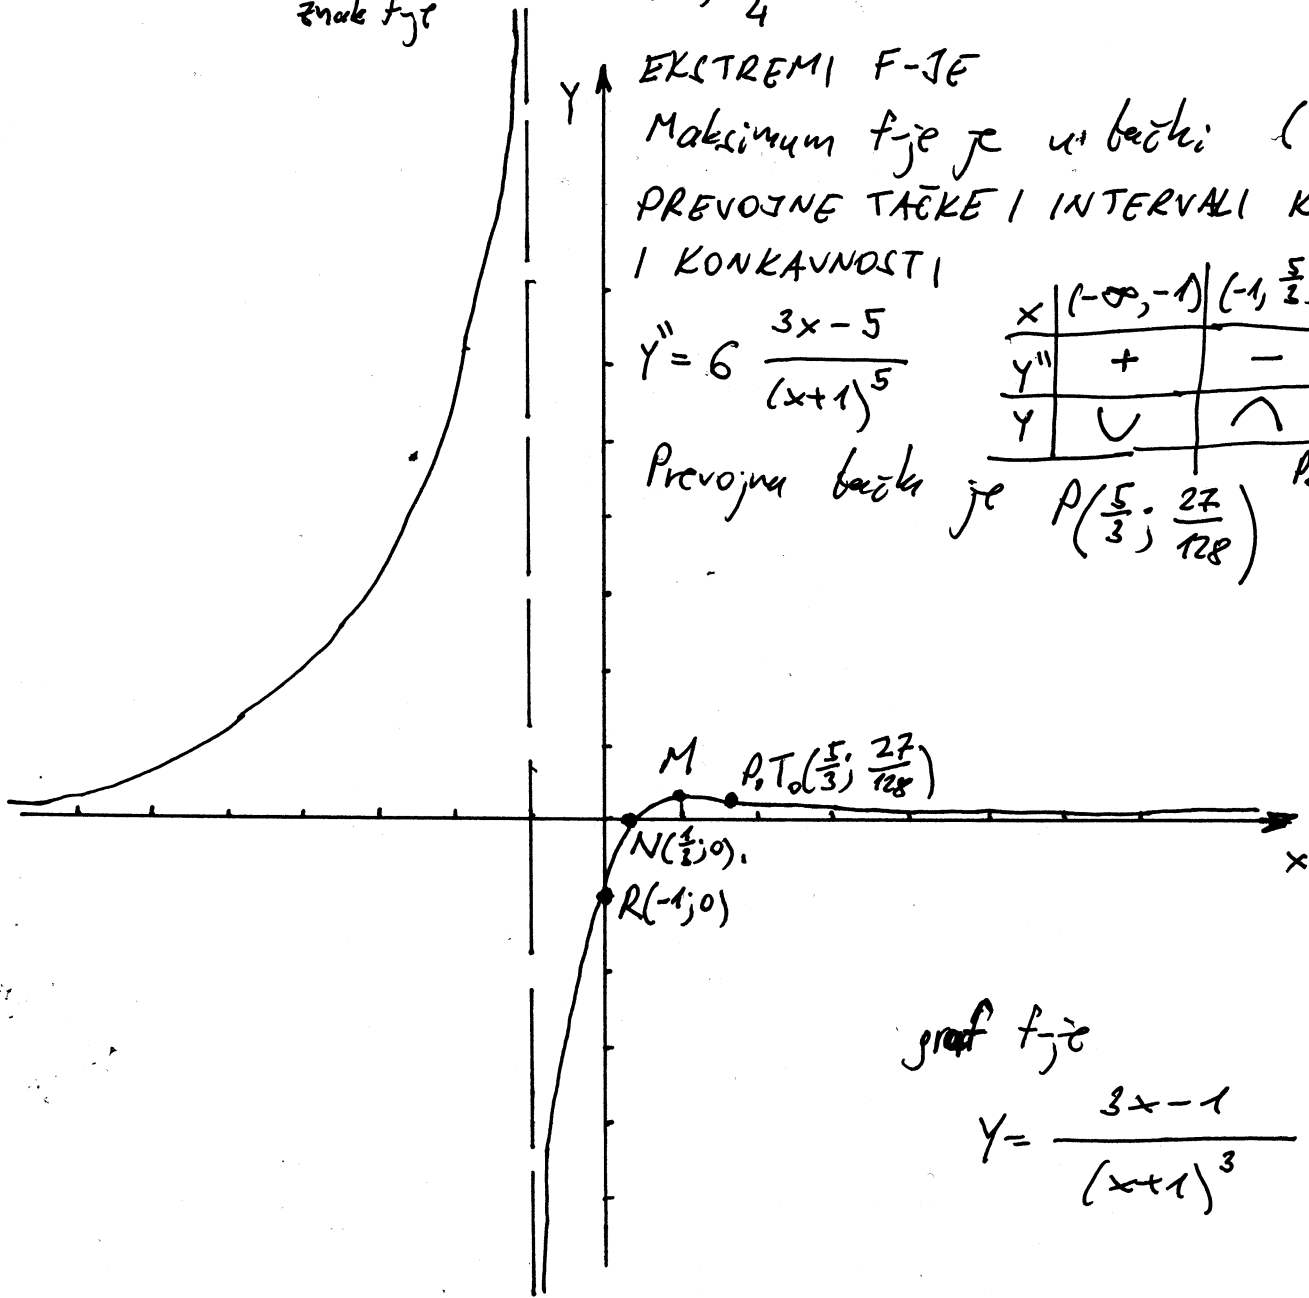 znak f-je
4
EKSTREMI F-JE
Y
Maksimum f-je je u tački (
PREVOJNE TAČKE I INTERVALI K
I KONKAVNOSTI
x | (-∞, -1) | (-1, 5/3
Y'' = 6 (3x-5)/(x+1)^5
Y'' | + | −
Y | ∪ | ∩
Prevojna tačka je P(5/3; 27/128)
P.
M P.T.(5/3; 27/128)
N(1/3;0).
x
R(-1;0)
graf f-je
Y = (3x-1)/(x+1)^3